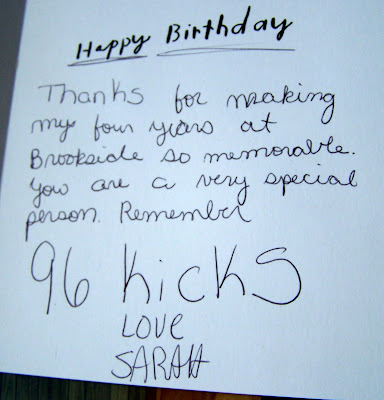 Happy Birthday
Thanks for making
my four years at
Brookside so memorable.
You are a very special
person. Remember
96 Kicks
LOVE
SARAH